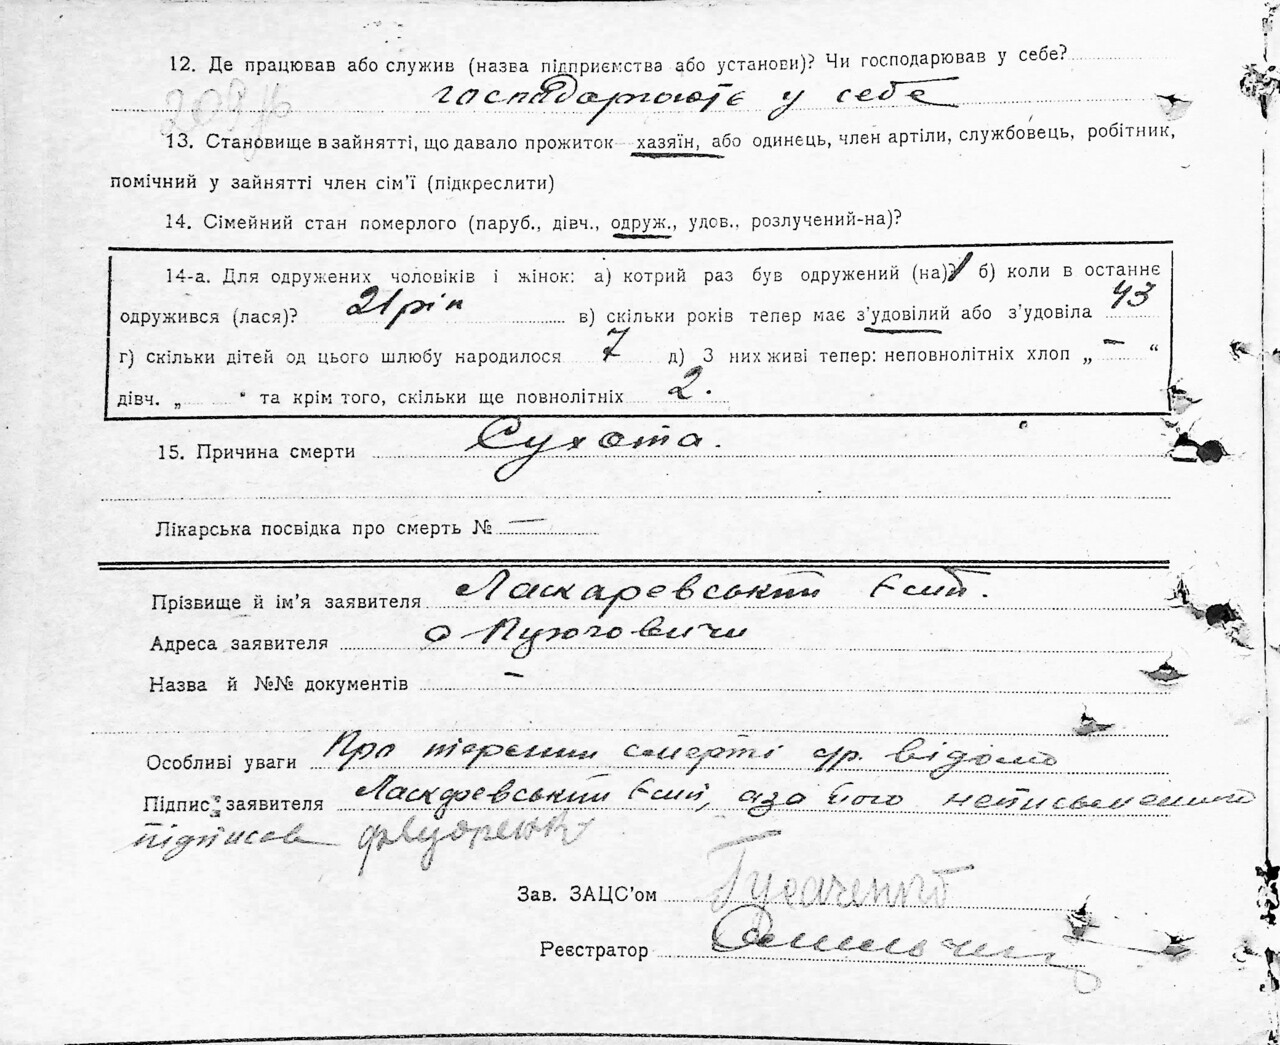 12. Де працював або служив (назва підприємства або установи)? Чи господарював у себе?
господарює у себе
13. Становище в зайнятті, що давало прожиток хазяїн, або одинець, член артіли, службовець, робітник,
помічний у зайнятті член сім'ї (підкреслити)
14. Сімейний стан померлого (паруб., дівч., одруж., удов., розлучений-на)?
14-а. Для одружених чоловіків і жінок: а) котрий раз був одружений (на)? 1 б) коли в останнє
одружився (лася)? 21 рік в) скільки років тепер має з'удовілий або з'удовіла 43
г) скільки дітей од цього шлюбу народилося 7 д) З них живі тепер: неповнолітніх хлоп „ — “
дівч. „ “ та крім того, скільки ще повнолітніх 2.
15. Причина смерти Сухота.
Лікарська посвідка про смерть № —
Прізвище й ім'я заявителя Ласкаревський Єсип.
Адреса заявителя
Назва й №№ документів —
Особливі уваги Про смерті відомо
Підпис заявителя Ласкаревський Єсип, а за його неписьменного
підписав
Зав. ЗАЦС'ом
Реєстратор